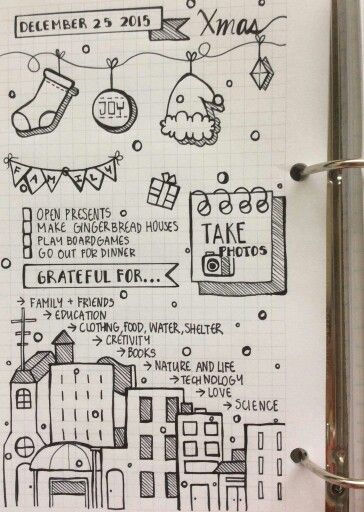 DECEMBER 25 2015
Xmas
JOY
FAMILY
OPEN PRESENTS
MAKE GINGERBREAD HOUSES
PLAY BOARDGAMES
GO OUT FOR DINNER
TAKE
PHOTOS
GRATEFUL FOR...
→ FAMILY + FRIENDS
→ EDUCATION
→ CLOTHING, FOOD, WATER, SHELTER
→ CRETIVITY
→ BOOKS
→ NATURE AND LIFE
→ TECHNOLOGY
→ LOVE
→ SCIENCE